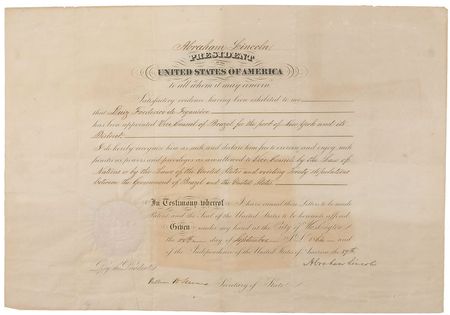 Abraham Lincoln,
PRESIDENT
UNITED STATES OF AMERICA
to all whom it may concern
Satisfactory evidence having been exhibited to me
that Luiz Frederico de Figanière
has been appointed Vice Consul of Brazil for the port of New York and its
District
I do hereby recognize him as such and declare him free to exercise and enjoy such
functions powers and privileges as are allowed to Vice Consuls by the Laws of
Nations or by the Laws of the United States and existing Treaty stipulations
between the Government of Brazil and the United States
In Testimony whereof I have caused these Letters to be made
Patent and the Seal of the United States to be hereunto affixed
Given under my hand at the City of Washington
the day of September A.D. 186 and
of the Independence of the United States of America, the
Abraham Lincoln
By the President
William H. Seward Secretary of State